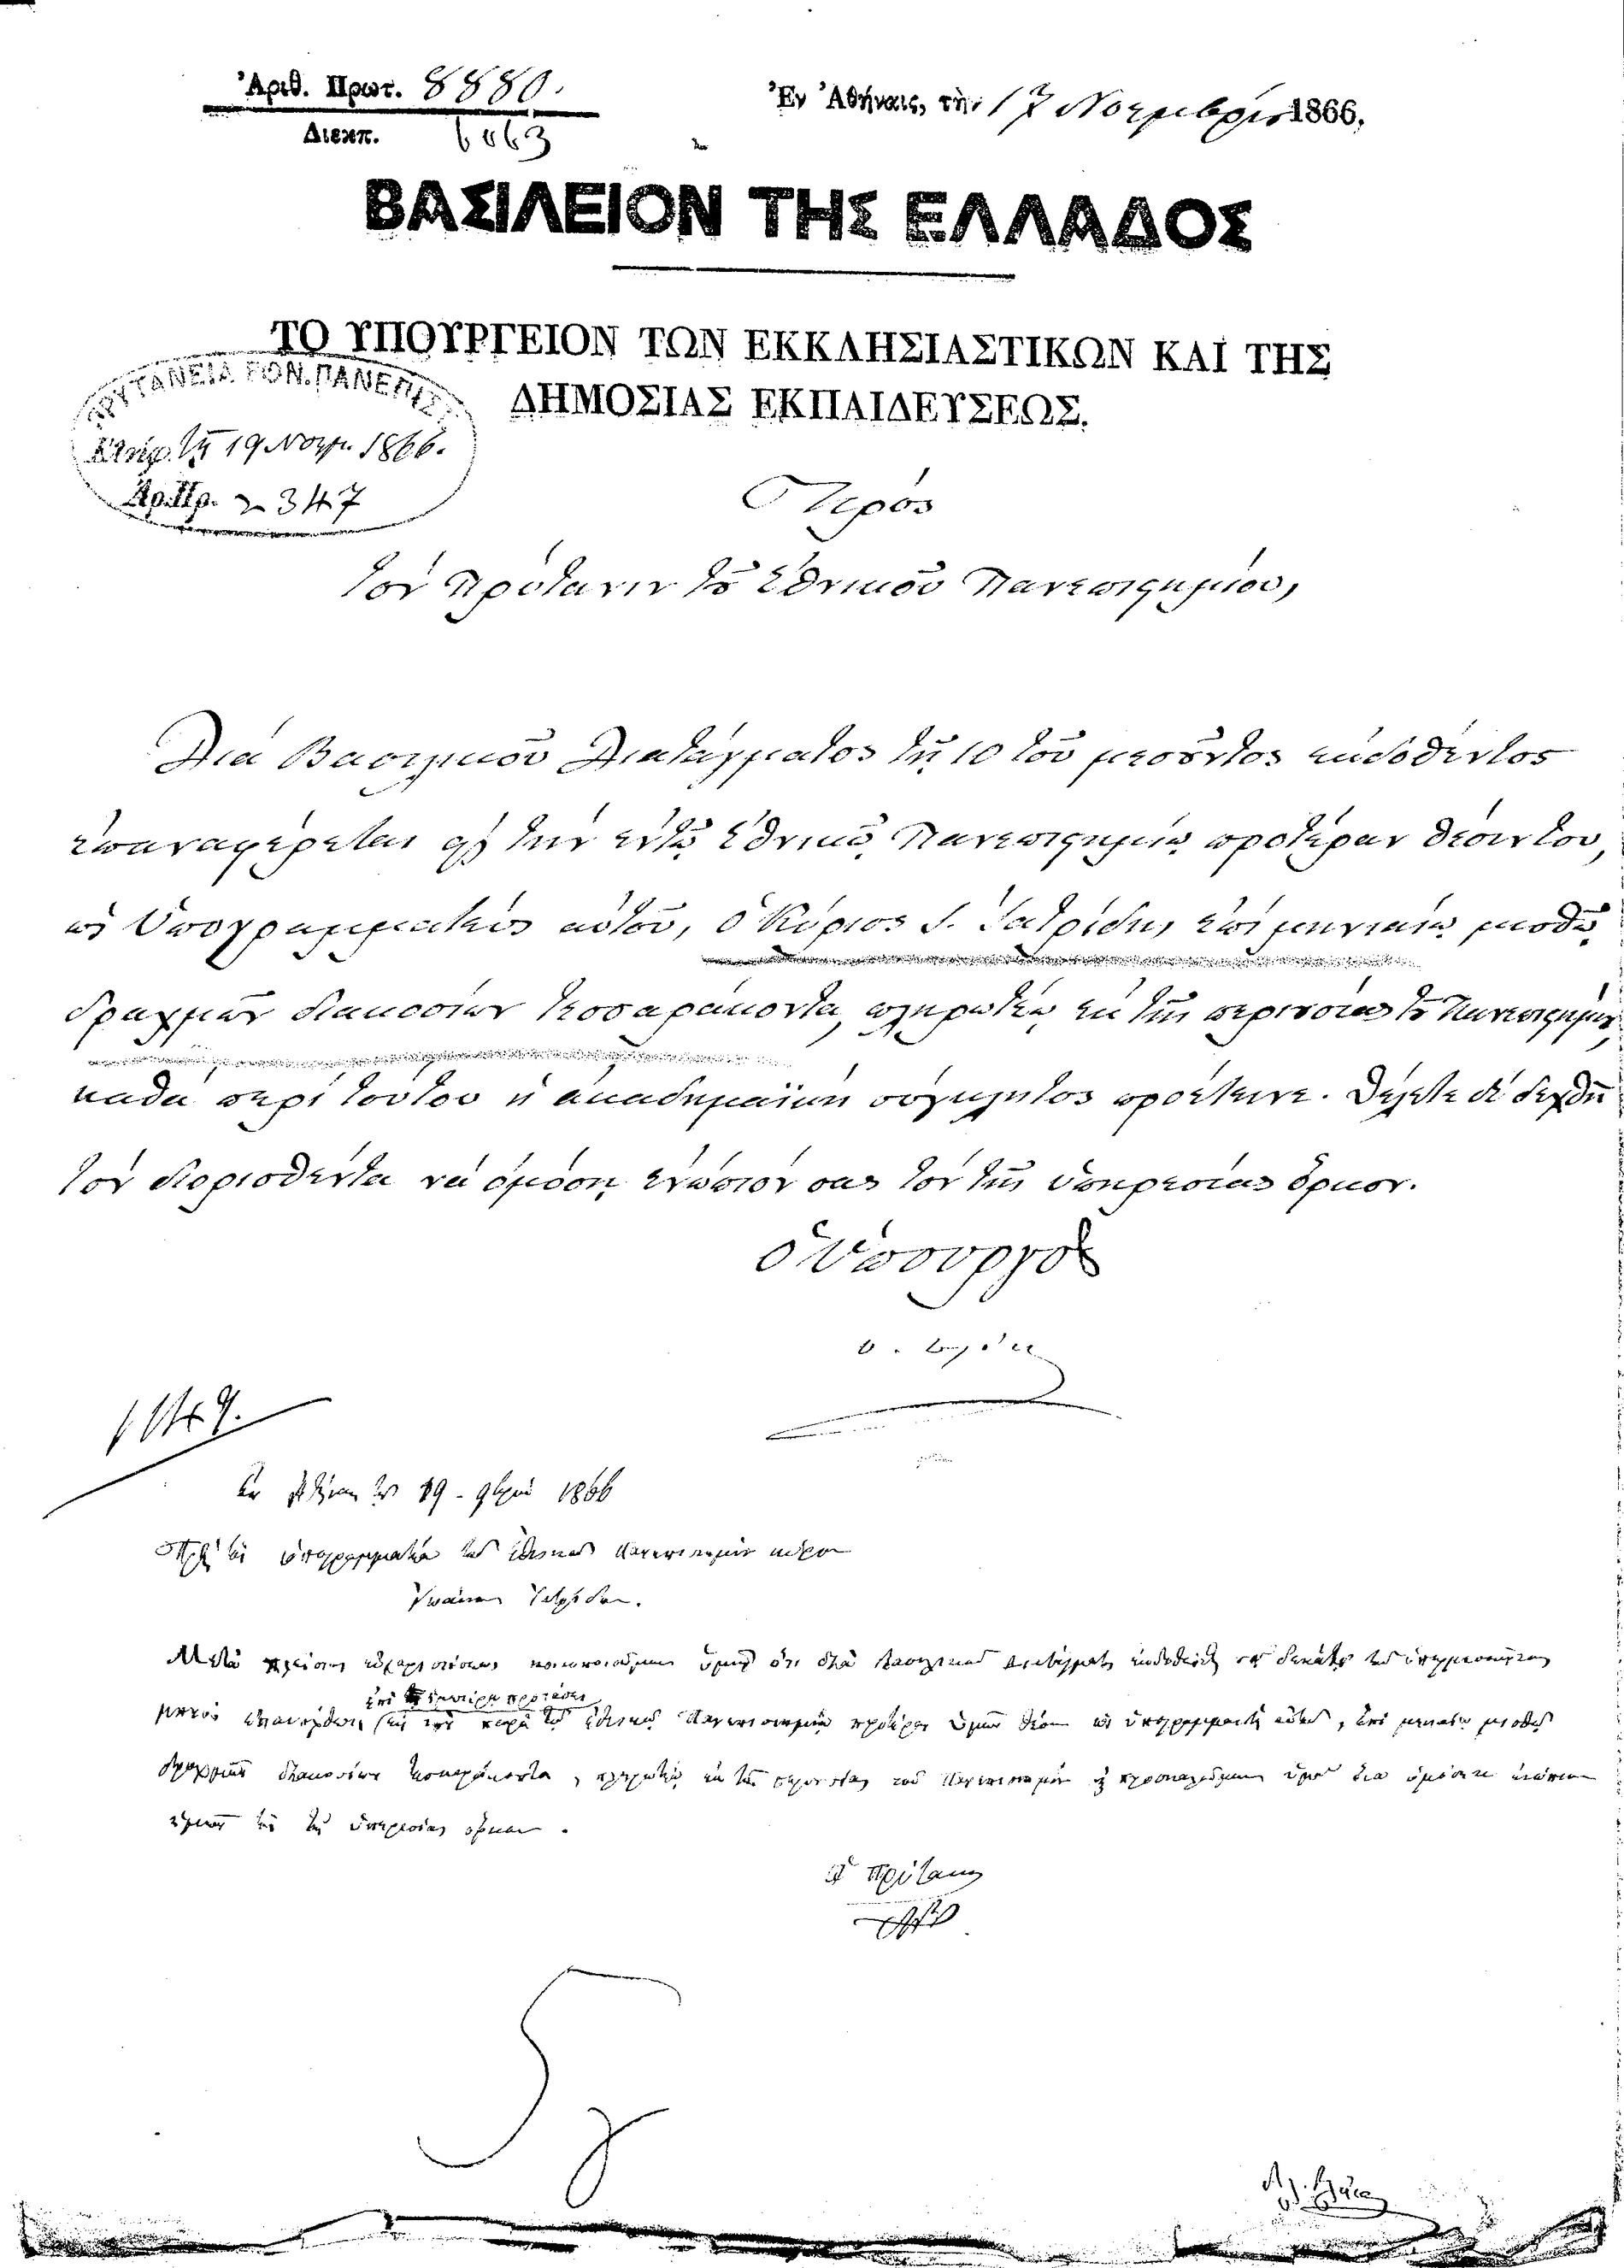 Ἀριθ. Πρωτ. 8880.
Διεκπ. 6063
Ἐν Ἀθήναις, τῇ 17 Νοεμβρίου 1866.
ΒΑΣΙΛΕΙΟΝ ΤΗΣ ΕΛΛΑΔΟΣ
ΤΟ ΥΠΟΥΡΓΕΙΟΝ ΤΩΝ ΕΚΚΛΗΣΙΑΣΤΙΚΩΝ ΚΑΙ ΤΗΣ
ΔΗΜΟΣΙΑΣ ΕΚΠΑΙΔΕΥΣΕΩΣ.
ΠΡΥΤΑΝΕΙΑ ΕΘΝ. ΠΑΝΕΠΙΣΤ.
Ἐλήφ. τῇ 19 Νοεμ. 1866.
Ἀρ. Πρ. 2347
Πρὸς
τὸν Πρύτανιν τοῦ Ἐθνικοῦ Πανεπιστημίου,
Διὰ Βασιλικοῦ Διατάγματος τῇ 10 τοῦ μεσοῦντος ἐκδοθέντος
ἐπαναφέρεται εἰς τὴν ἐν τῷ Ἐθνικῷ Πανεπιστημίῳ προτέραν θέσιν του,
ὡς Ὑπογραμματέως αὐτοῦ, ὁ Κύριος Ι. Ἰατρίδης ἐπὶ μηνιαίῳ μισθῷ
δραχμῶν διακοσίων τεσσαράκοντα, πληρωτέῳ ἐκ τῆς περιουσίας τοῦ Πανεπιστημίου,
καθὰ περὶ τούτου ἡ ἀκαδημαϊκὴ σύγκλητος προέτεινε. Θέλετε δὲ δεχθῆ
τὸν διορισθέντα νὰ ὀμόσῃ ἐνώπιόν σας τὸν τῆς ὑπηρεσίας ὅρκον.
ὁ Ὑπουργὸς
1149.
Ἐν Ἀθήναις τῇ 19 - 9βρίου 1866
Πρὸς τὸν ὑπογραμματέα τοῦ Ἐθνικοῦ Πανεπιστημίου κύριον
Ἰωάννην Ἰατρίδην.
Μετὰ πλείστης εὐχαριστήσεως κοινοποιοῦμεν ὑμῖν ὅτι διὰ Βασιλικοῦ Διατάγματος ἐκδοθέντος τῇ δεκάτῃ τοῦ
ἐπὶ τῇ ἡμετέρᾳ προτάσει
μηνὸς εἰς τὴν παρὰ τῷ Ἐθνικῷ Πανεπιστημίῳ προτέραν ὑμῶν θέσιν ὡς ὑπογραμματέως αὐτοῦ, ἐπὶ μηνιαίῳ μισθῷ
δραχμῶν διακοσίων τεσσαράκοντα, πληρωτέῳ ἐκ τῆς περιουσίας τοῦ Πανεπιστημίου προσκαλοῦμεν ὑμᾶς ἵνα ὀμόσητε ἐνώπιον
ἡμῶν τὸν τῆς ὑπηρεσίας ὅρκον.
Ὁ Πρύτανις